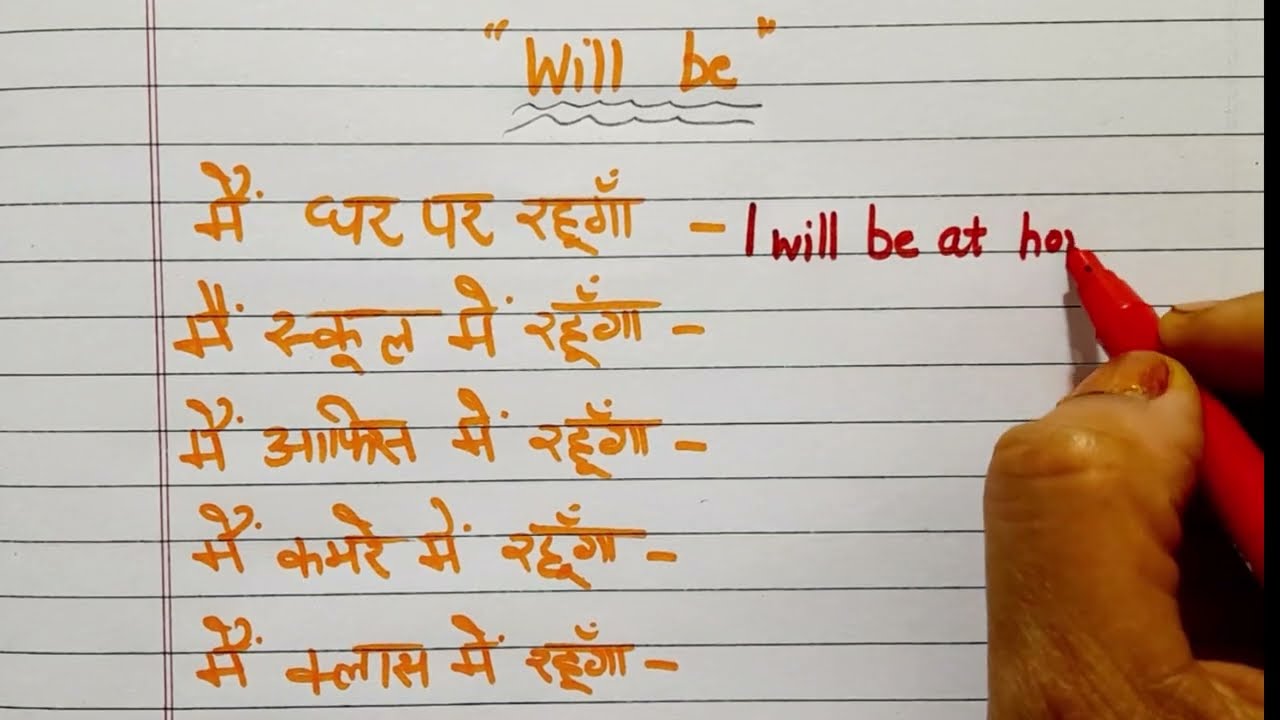 "Will be"
मैं घर पर रहूगाँ - I will be at ho
मैं स्कूल में रहूँगा -
मैं आफिस में रहूँगा -
मैं कमरे में रहूँगा -
मैं क्लास में रहूँगा -